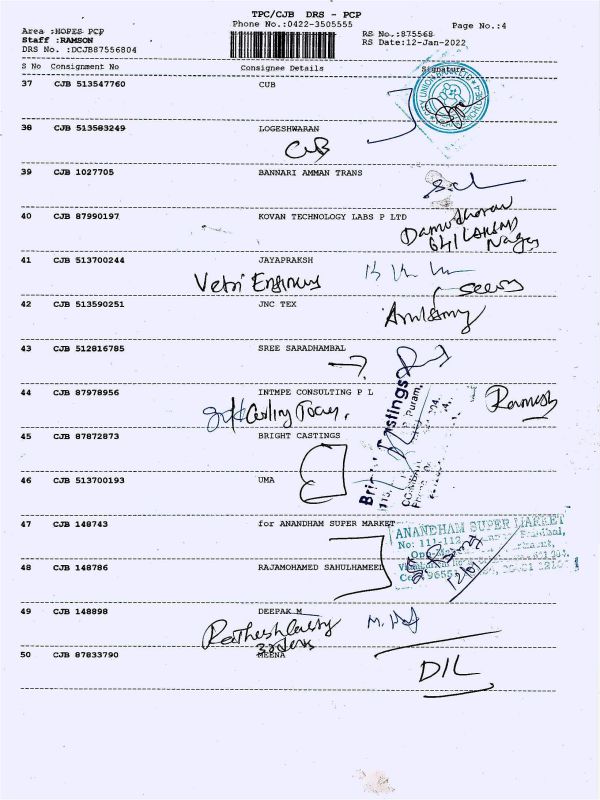 TPC/CJB DRS - PCP
Phone No.:0422-3505555
Page No.:4
Area :HOPES PCP
Staff :RAMSON
DRS No. :DCJB87556804
RS No.:875568
RS Date:12-Jan-2022
S No Consignment No Consignee Details Signature
37 CJB 513547760 CUB
38 CJB 513583249 LOGESHWARAN
CUB
39 CJB 1027705 BANNARI AMMAN TRANS
40 CJB 87990197 KOVAN TECHNOLOGY LABS P LTD
Damodharan
Nagar
41 CJB 513700244 JAYAPRAKSH
Vetri Engineers
42 CJB 513590251 JNC TEX
43 CJB 512816785 SREE SARADHAMBAL
44 CJB 87978956 INTMPE CONSULTING P L
Ramesh
45 CJB 87872873 BRIGHT CASTINGS
46 CJB 513700193 UMA
47 CJB 148743 for ANANDHAM SUPER MARKET
ANANDHAM SUPER MARKET
No: 111-112
48 CJB 148786 RAJAMOHAMED SAHULHAMEED
49 CJB 148898 DEEPAK M
50 CJB 87833790 MEENA
D/L